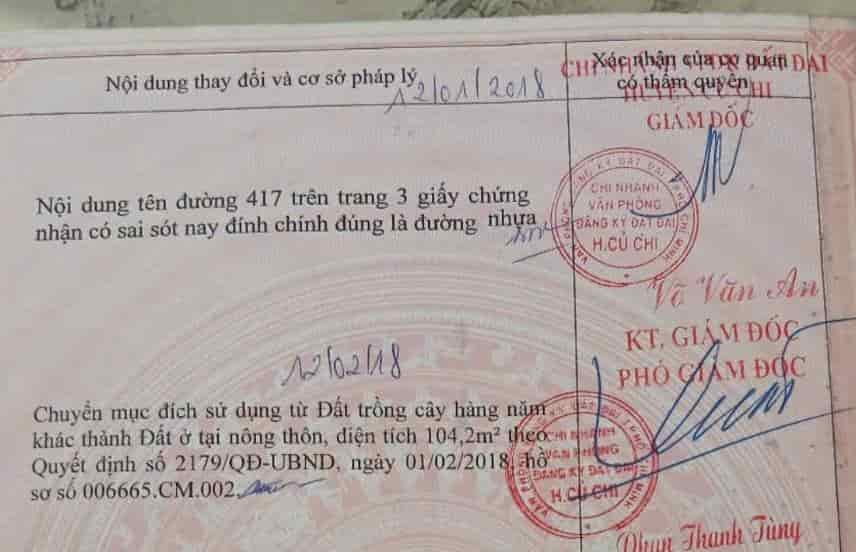 Nội dung thay đổi và cơ sở pháp lý
Xác nhận của cơ quan
có thẩm quyền
CHI NHÁNH ĐẤT ĐAI
HUYỆN CỦ CHI
GIÁM ĐỐC
12/01/2018
Nội dung tên đường 417 trên trang 3 giấy chứng
nhận có sai sót nay đính chính đúng là đường nhựa
VĂN PHÒNG ĐĂNG KÝ ĐẤT ĐAI TP.HỒ CHÍ MINH
CHI NHÁNH
VĂN PHÒNG
ĐĂNG KÝ ĐẤT ĐAI
H.CỦ CHI
Võ Văn An
KT. GIÁM ĐỐC
PHÓ GIÁM ĐỐC
12/02/18
Chuyển mục đích sử dụng từ Đất trồng cây hàng năm
khác thành Đất ở tại nông thôn, diện tích 104,2m² theo
Quyết định số 2179/QĐ-UBND, ngày 01/02/2018, hồ
sơ số 006665.CM.002.
CHI NHÁNH
VĂN PHÒNG
ĐĂNG KÝ ĐẤT ĐAI
H.CỦ CHI
Phan Thanh Tùng